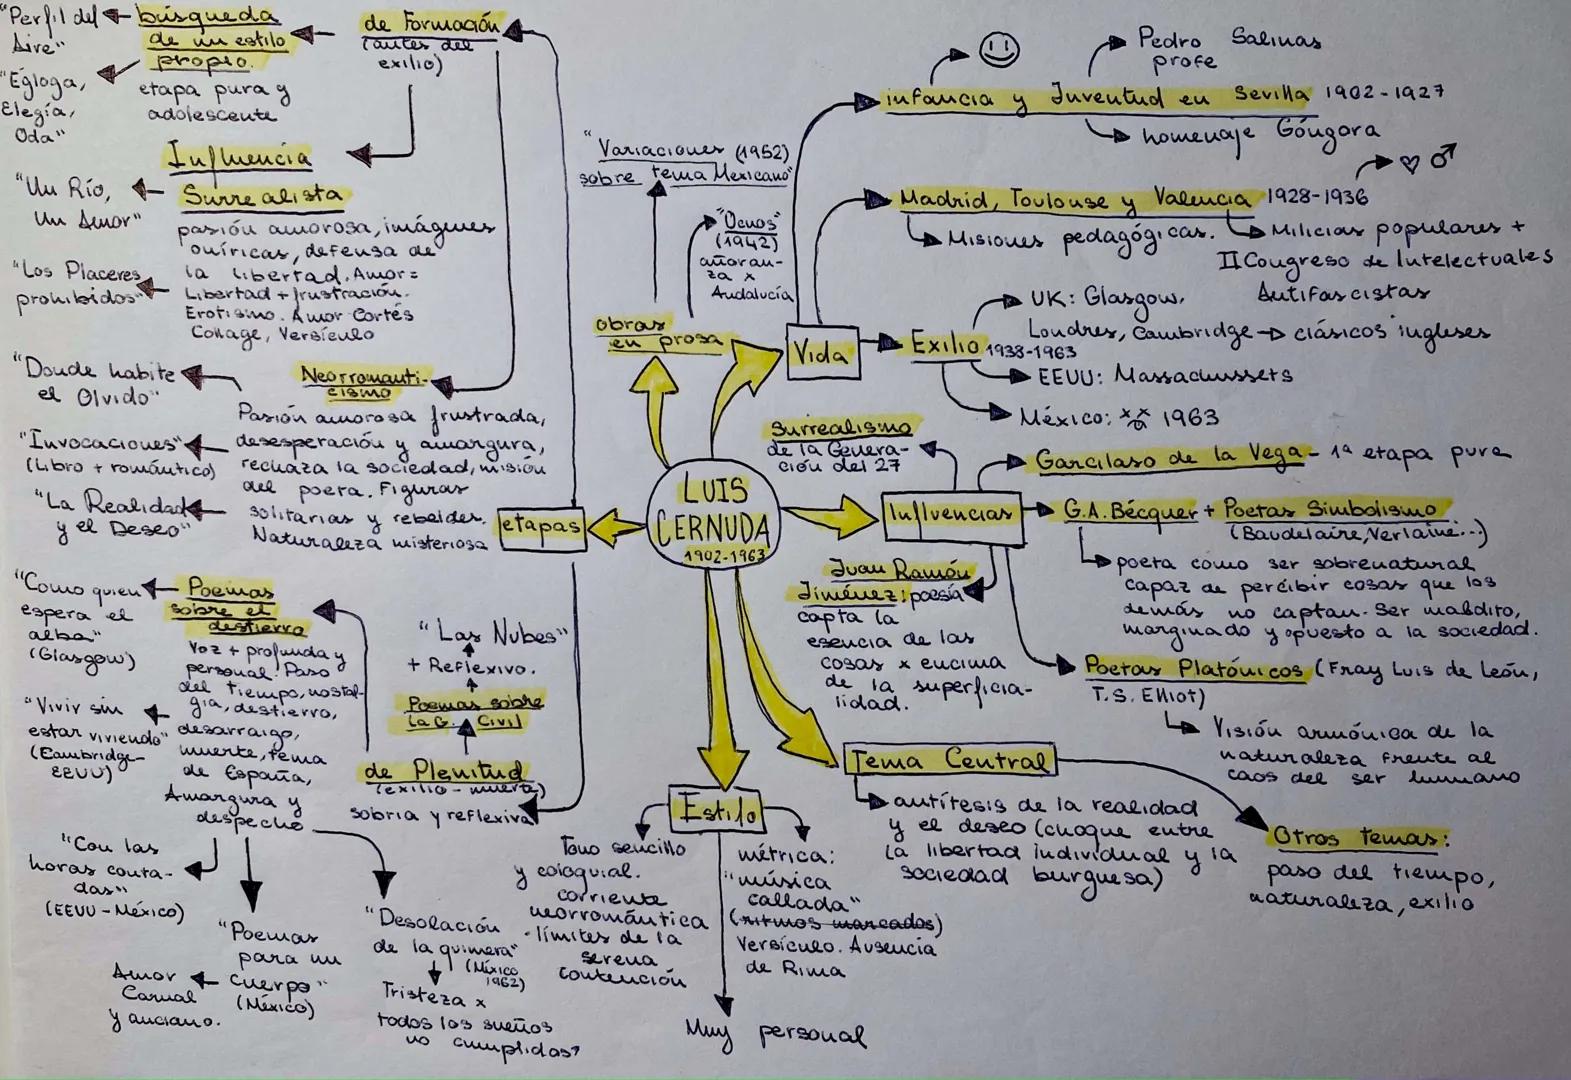 LUIS
CERNUDA
1902-1963
Vida
infancia y Juventud en Sevilla 1902-1927
Pedro Salinas
profe
homenaje Góngora
Madrid, Toulouse y Valencia 1928-1936
Misiones pedagógicas.
Milicias populares +
II Congreso de Intelectuales
Antifascistas
Exilio 1938-1963
UK: Glasgow,
Londres, Cambridge → clásicos ingleses
EEUU: Massachussets
México: 1963
obras
en prosa
"Variaciones (1952)
sobre tema Mexicano"
"Ocnos"
(1942)
añoran-
za x
Andalucía
Influencias
Surrealismo
de la Genera-
ción del 27
Garcilaso de la Vega - 1ª etapa pura
G.A. Bécquer + Poetas Simbolismo
(Baudelaire, Verlaine...)
poeta como ser sobrenatural
capaz de percibir cosas que los
demás no captan. Ser maldito,
marginado y opuesto a la sociedad.
Juan Ramón
Jiménez: poesía
capta la
esencia de las
cosas x encima
de la superficia-
lidad.
Poetas Platónicos (Fray Luis de León,
T.S. Elliot)
Visión armónica de la
naturaleza frente al
caos del ser humano
Tema Central
antítesis de la realidad
y el deseo (choque entre
la libertad individual y la
sociedad burguesa)
Otros temas:
paso del tiempo,
naturaleza, exilio
Estilo
Tono sencillo
y coloquial.
corriente
neorromántica
límites de la
serena
contención
métrica:
"música
callada"
(ritmos marcados)
Versículo. Ausencia
de Rima
Muy personal
etapas
de Formación
(antes del
exilio)
búsqueda
de un estilo
propio.
etapa pura y
adolescente
"Perfil del
Aire"
"Égloga,
Elegía,
Oda"
Influencia
Surrealista
pasión amorosa, imágenes
oníricas, defensa de
la libertad. Amor =
Libertad + frustración.
Erotismo. Amor Cortés
Collage, Versículo
"Un Río,
Un Amor"
"Los Placeres
prohibidos"
Neorromanti-
cismo
Pasión amorosa frustrada,
desesperación y amargura,
rechaza la sociedad, misión
del poeta. Figuras
solitarias y rebeldes.
Naturaleza misteriosa
"Donde habite
el Olvido"
"Invocaciones"
(Libro + romántico)
"La Realidad
y el Deseo"
de Plenitud
(exilio - muerte)
sobria y reflexiva
Poemas sobre
la G. Civil
+ Reflexivo.
"Las Nubes"
Poemas
sobre el
destierro
Voz + profunda y
personal. Paso
del tiempo, nostal-
gia, destierro,
desarraigo,
muerte, tema
de España,
Amargura y
despecho
"Como quien
espera el
alba"
(Glasgow)
"Vivir sin
estar viviendo"
(Cambridge-
EEUU)
"Con las
horas conta-
das"
(EEUU-México)
"Poemas
para un
Cuerpo"
(México)
Amor
Carnal
y anciano.
"Desolación
de la quimera"
(México
1962)
Tristeza x
todos los sueños
no cumplidos